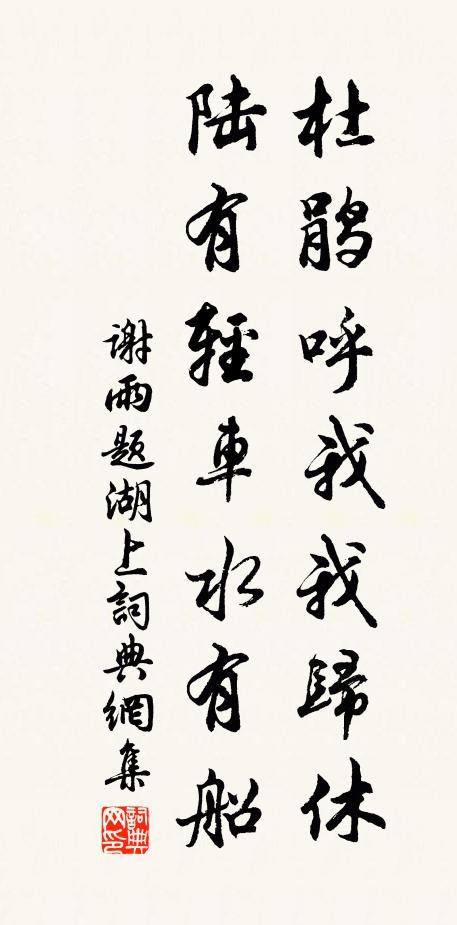 杜鵑呼我我歸休
陸有輕車水有船
謝雨題湖上詞典網集
詞典网印